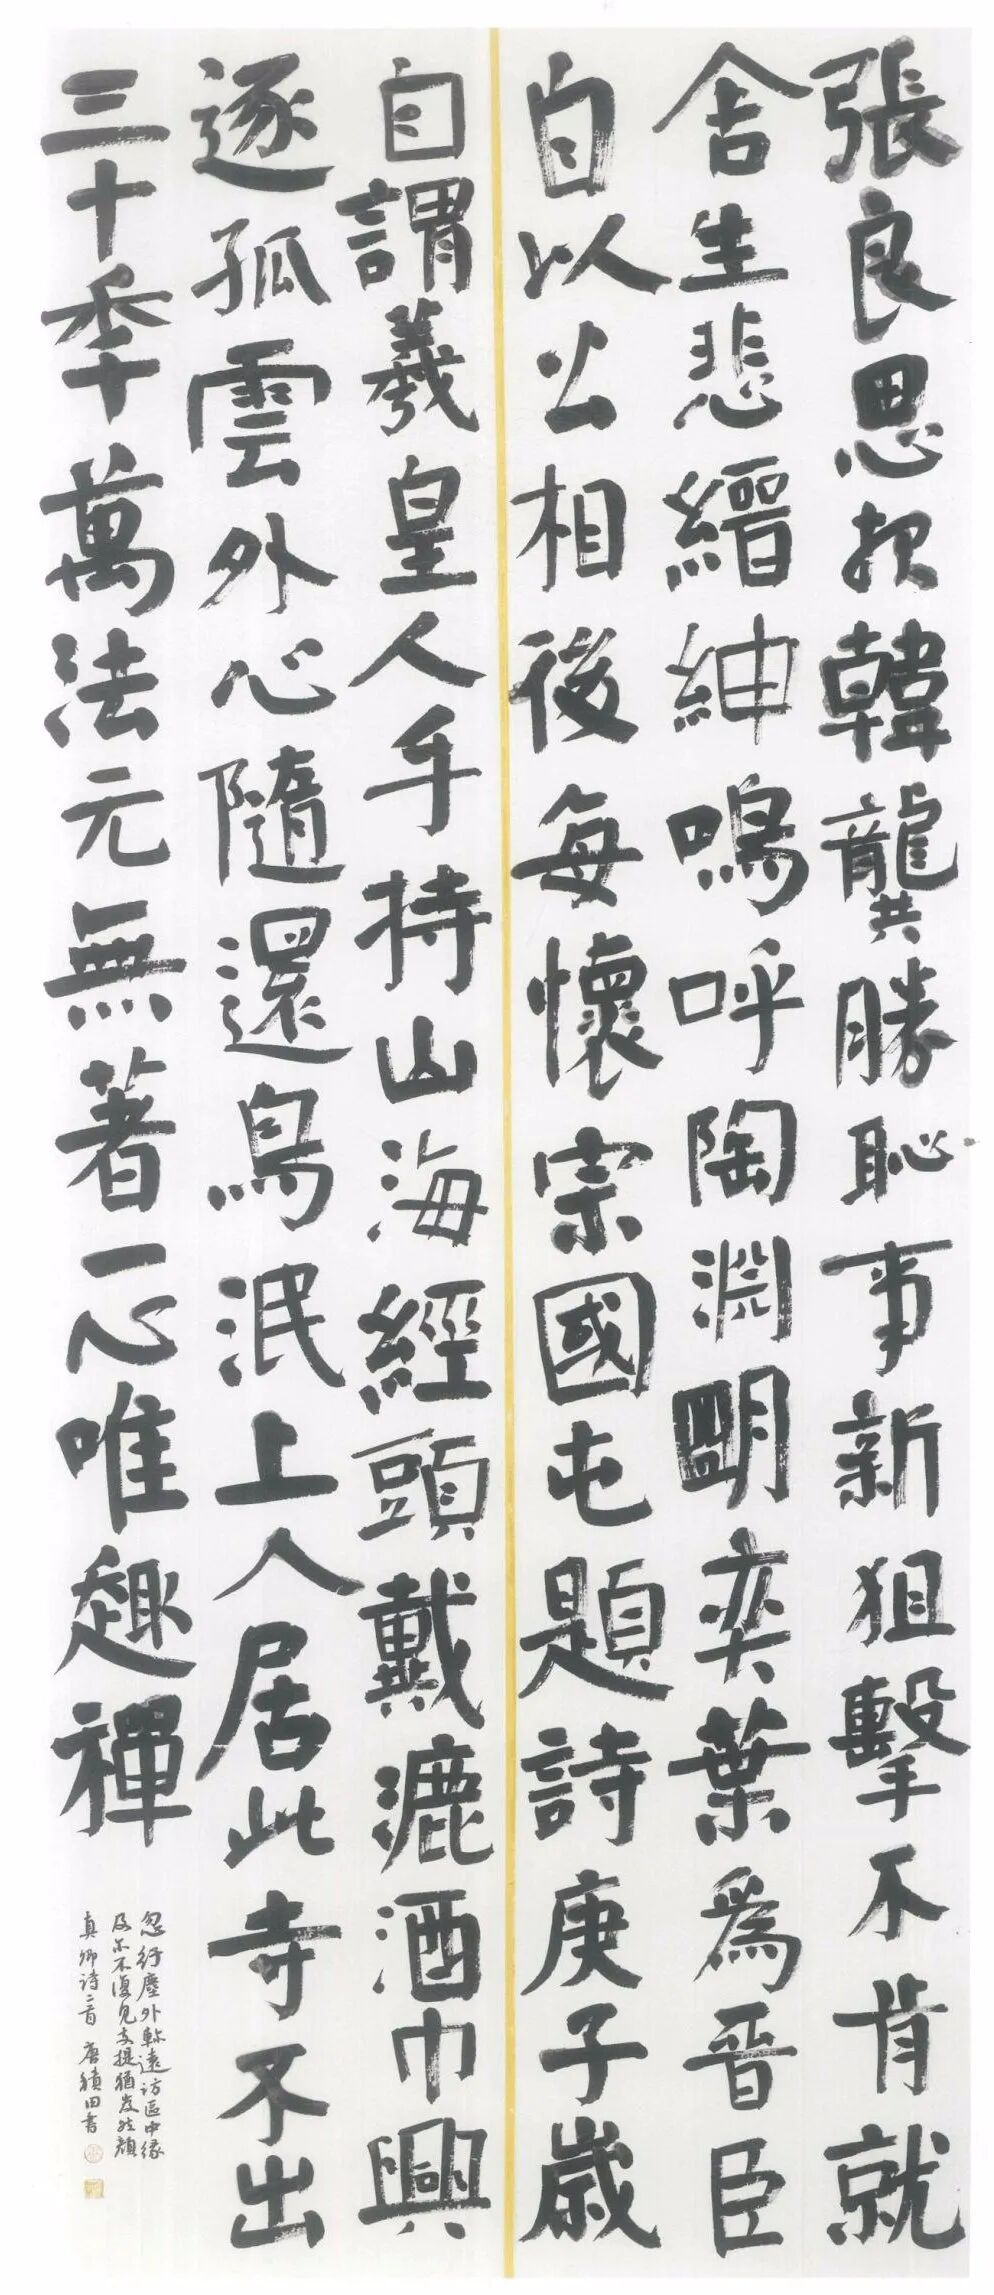 張良思報韓龔勝恥事新狙擊不肯就
舍生悲縉紳嗚呼陶淵朙奕葉爲晉臣
自以公相後每懷宗國屯題詩庚子歲
自謂羲皇人手持山海經頭戴漉酒巾興
逐孤雲外心隨還鳥泯上人居此寺不出
三十秊萬法元無著一心唯趣禪
忽紆塵外軫遠訪區中緣
及尔不復見支提猶岌然顏
真卿詩二首 唐田書